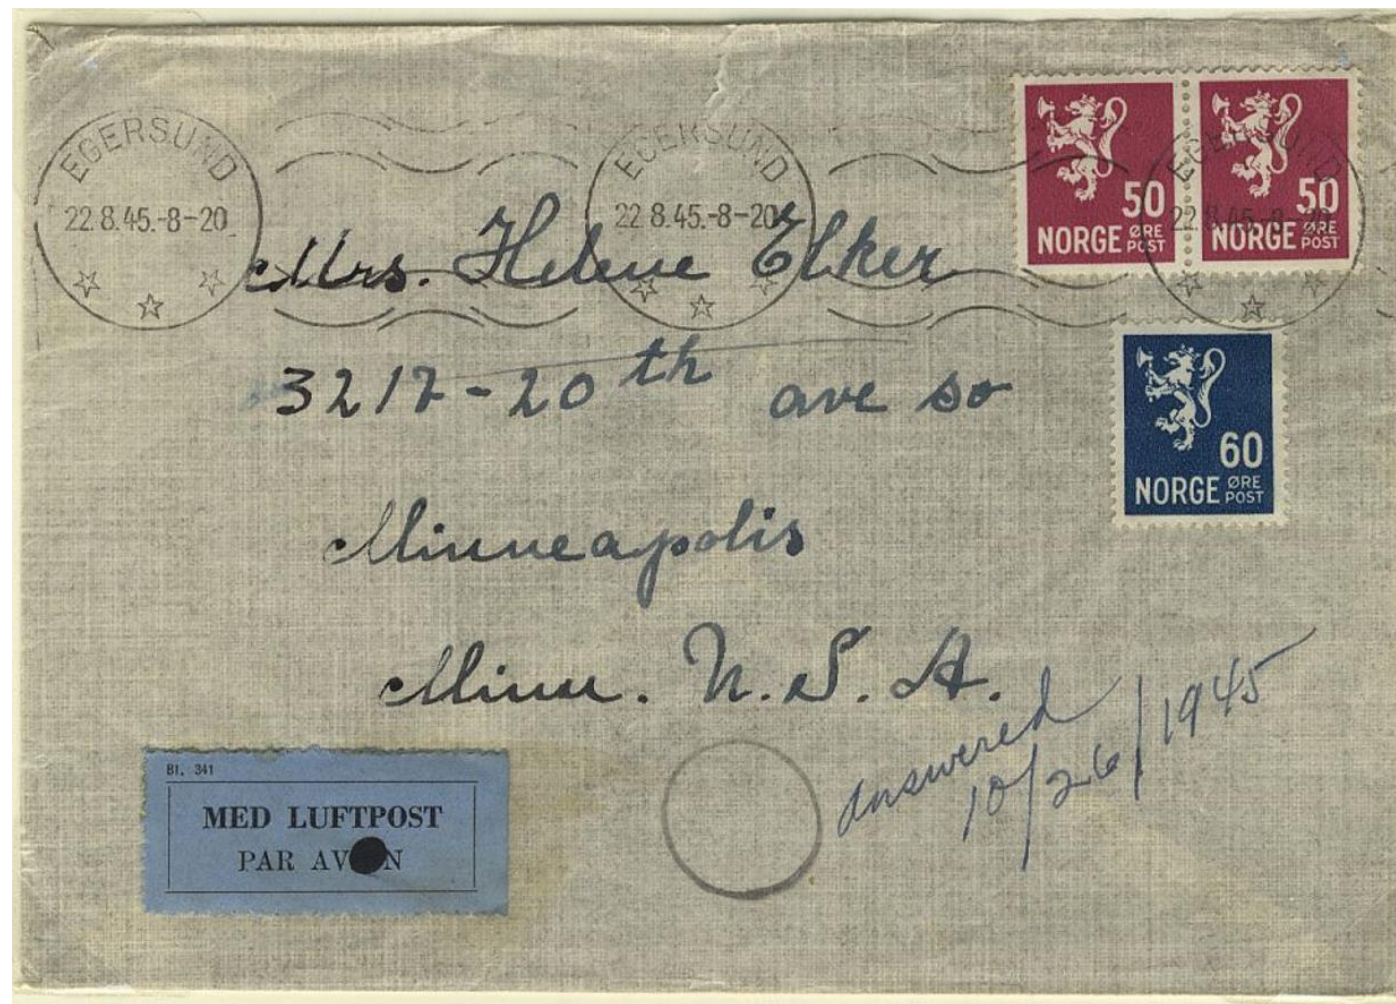 EGERSUND
22.8.45.-8-20
EGERSUND
22.8.45.-8-20
EGERSUND
22.8.45.-8-20
50
NORGE ØRE POST
50
NORGE ØRE POST
Mrs. Helene Elker
3217-20th ave so
60
NORGE ØRE POST
Minneapolis
Minn. U.S.A.
answered
10/26/1945
Bl. 341
MED LUFTPOST
PAR AVION